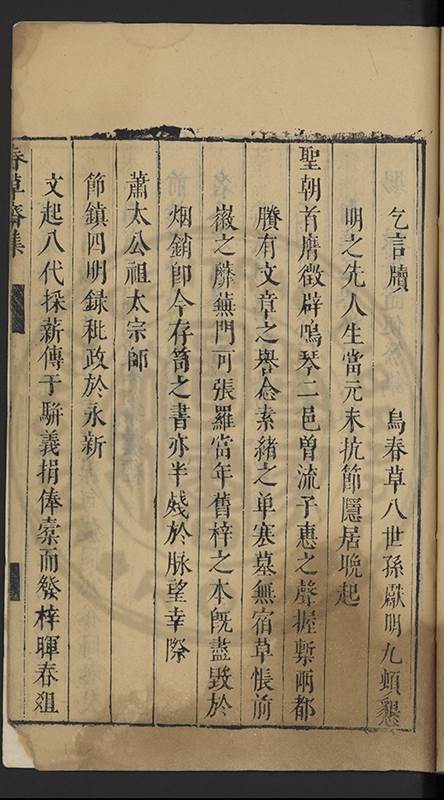 乞言牘　烏春草八世孫獻明九頓懇
明之先人生當元末抗節隱居晚起
聖朝首膺徵辟鳴琴二邑曾流子惠之聲握槧兩都
賸有文章之譽念素緒之单塞墓無宿草悵前
徽之蘼蕪門可張羅當年舊梓之本旣盡毀於
烟銷卽今存笥之書亦半殘於脉望幸際
蕭太公祖太宗師
節鎮四明錄秕政於永新
文起八代採薪傳于駢義捐俸橐而發梓暉春爼
春草齋集